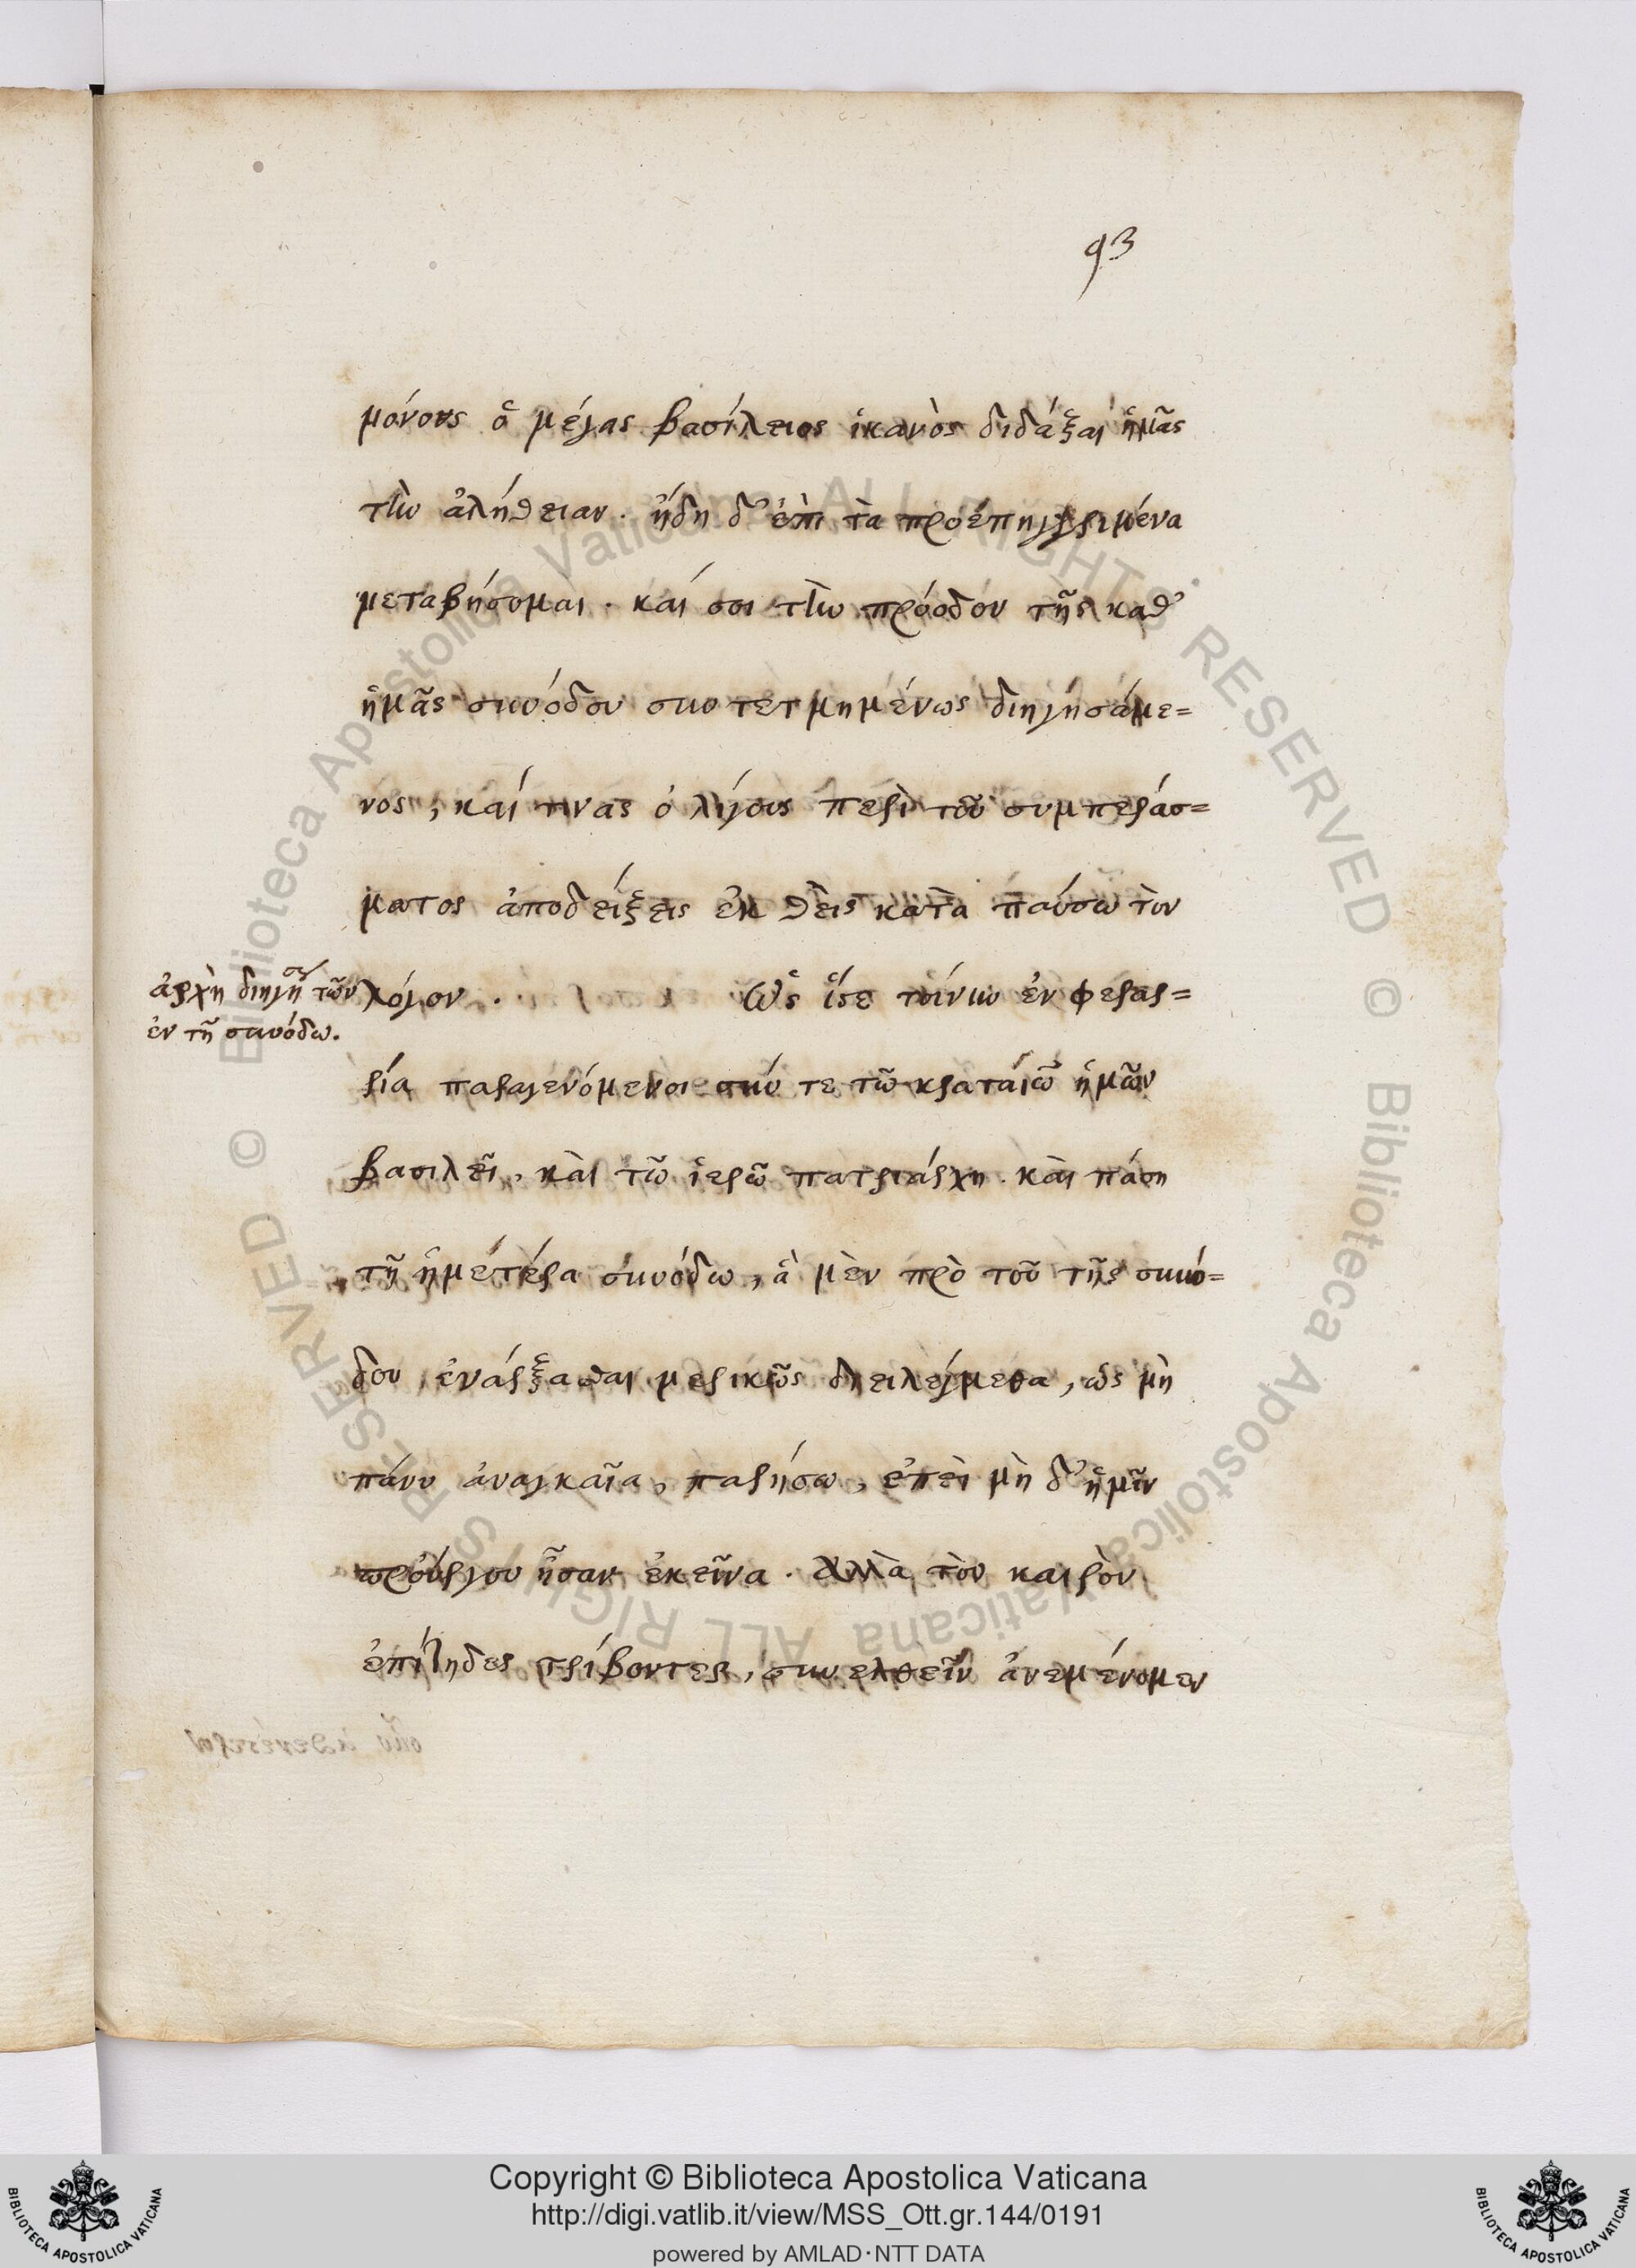 93
μόνους ὁ μέγας βασίλειος ἱκανὸς διδάξαι ἡμᾶς
τὴν ἀλήθειαν. ἤδη δ' ἐπὶ τὰ προεπηγγελμένα
μεταβήσομαι. καί σοι τὴν πρόοδον τῆς καθ'
ἡμᾶς συνόδου συντετμημένως διηγησάμε=
νος, καί τινας ὀλίγους περὶ τοῦ συμπεράσ=
ματος ἀποδείξεις ἐκθεὶς καταπαύσω τὸν
ἀρχὴ διηγήσ τῶν
ἐν τῇ συνόδω.
λόγον. Ὡς ἴστε τοίνυν ἐν φεραρ=
ρία παραγενόμενοι σύν τε τῶ κραταιῶ ἡμῶν
βασιλεῖ, καὶ τῶ ἱερῶ πατριάρχη. καὶ πάση
τῆ ἡμετέρα συνόδω, ἃ μὲν πρὸ τοῦ τῆς συνό=
δου ἐνάρξασθαι μερικῶς διειλέγμεθα, ὡς μὴ
πάνυ ἀναγκαῖα, παρήσω, ἐπεὶ μὴ δ' ἡμῖν
προύργου ἦσαν ἐκεῖνα. Ἀλλὰ τὸν καιρὸν
ἐπίτηδες τρίβοντες, συνελθεῖν ἀνεμένομεν
© Biblioteca Apostolica Vaticana ALL RIGHTS RESERVED
© Biblioteca Apostolica Vaticana ALL RIGHTS RESERVED
Copyright © Biblioteca Apostolica Vaticana
http://digi.vatlib.it/view/MSS_Ott.gr.144/0191
powered by AMLAD·NTT DATA
BIBLIOTECA APOSTOLICA VATICANA
BIBLIOTECA APOSTOLICA VATICANA